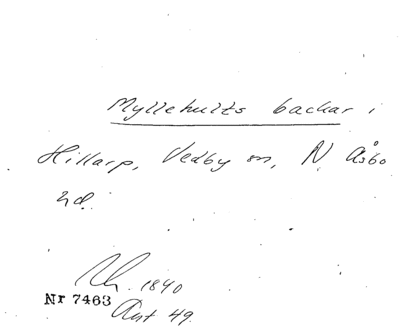 Myllehults backar i
Hillarp, Vedby sn, N Åsbo
hd.
1840
Nr 7463
Ant 49.